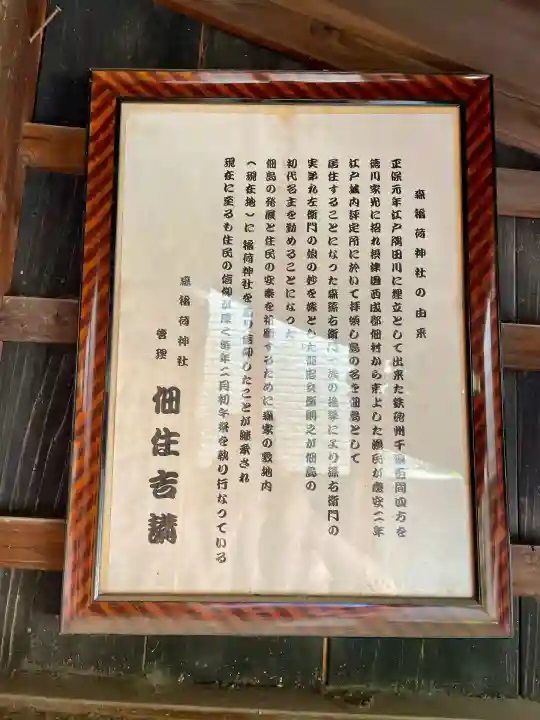 森稲荷神社の由来
正保元年江戸隅田川に埋立として出来た鉄砲州千 百間四方を
徳川家光に招れ摂津国西成郡佃村から来上した漁民が慶安二年
江戸城内評定所に於いて拝領し島の名を佃島として
居住することになった森孫右衛門一族の推挙により孫右衛門の
実弟九左衛門の娘の妙を嫁とした 忠兵衛則之が佃島の
初代名主を勤めることになった
佃島の発展と住民の安泰を祈願するために森家の敷地内
(現在地)に稲荷神社を り信仰したことが継承され
現在に至るも住民の信仰が厚く毎年二月初午祭を執り行なっている
森稲荷神社
管理 佃住吉講